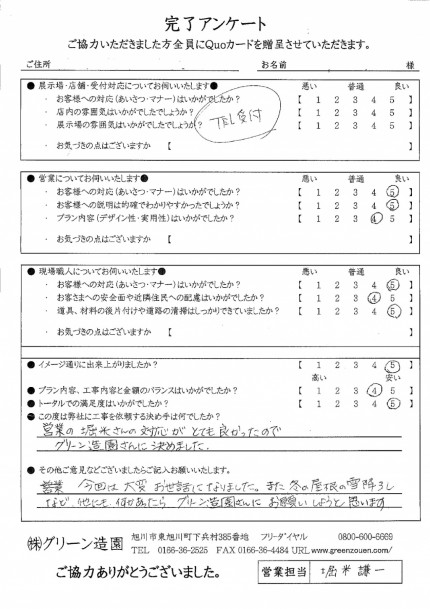 完了アンケート
ご協力いただきました方全員にQuoカードを贈呈させていただきます。
ご住所 お名前 様
● 展示場・店舗・受付対応についてお伺いいたします● 悪い 普通 良い
・ お客様への対応(あいさつ・マナー)はいかがでしたか? 【 1 2 3 4 5 】
・ 店内の雰囲気はいかがでしたでしょうか? 【 1 2 3 4 5 】
・ 展示場の雰囲気はいかがでしたでしょうか? 【 1 2 3 4 5 】
TEL受付
・ お気づきの点はございますか 【 】
● 営業についてお伺いいたします● 悪い 普通 良い
・ お客様への対応(あいさつ・マナー)はいかがでしたか? 【 1 2 3 4 5 】
・ お客様への説明は的確でわかりやすかったでしょうか? 【 1 2 3 4 5 】
・ プラン内容(デザイン性・実用性)はいかがでしたか? 【 1 2 3 4 5 】
・ お気づきの点はございますか 【 】
● 現場職人についてお伺いいたします● 悪い 普通 良い
・ お客様への対応(あいさつ・マナー)はいかがでしたか? 【 1 2 3 4 5 】
・ お客さまへの安全面や近隣住民への配慮はいかがでしたか? 【 1 2 3 4 5 】
・ 道具、材料の後片付けや道路の清掃はしっかりできていましたか? 【 1 2 3 4 5 】
・ お気づきの点はございますか 【 】
● イメージ通りに出来上がりましたか? 【 1 2 3 4 5 】
高い 安い
● プラン内容、工事内容と金額のバランスはいかがでしたか? 【 1 2 3 4 5 】
● トータルでの満足度はいかがでしたか? 【 1 2 3 4 5 】
● この度は弊社に工事を依頼する決め手は何でしたか?
営業の堀米さんの対応がとても良かったので
グリーン造園さんに決めました.
● その他ご意見などございましたらご記入お願いいたします。
今回は大変お世話になりました。また冬の屋根の雪降ろし
など、他にも何かあったらグリーン造園さんにお願いしようと思います
㈱グリーン造園
旭川市東旭川町下兵村385番地 フリーダイヤル 0800-600-6669
TEL 0166-36-2525 FAX 0166-36-4484 URL www.greenzouen.com/
ご協力ありがとうございました。
営業担当 堀米謙一